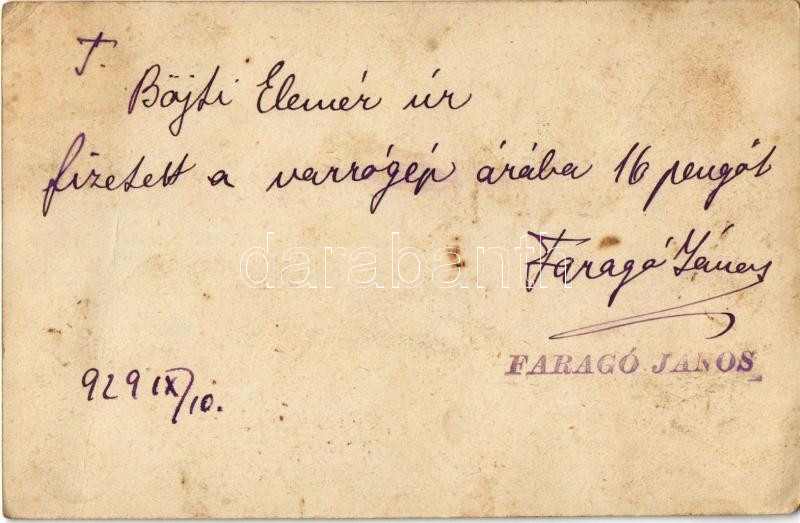 T.
Böjti Elemér úr
fizetett a varrógép árába 16 pengőt
darabanth
Faragó János
FARAGÓ JÁNOS
929 IX/10.